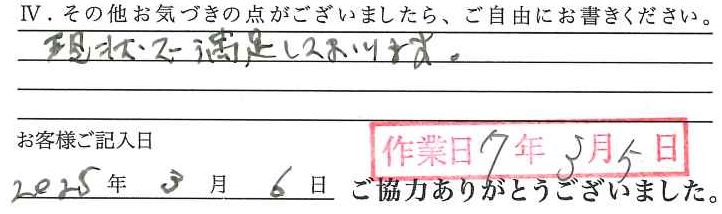 Ⅳ．その他お気づきの点がございましたら、ご自由にお書きください。
現状で満足しております。
お客様ご記入日
作業日7年3月5日
2025年3月6日 ご協力ありがとうございました。